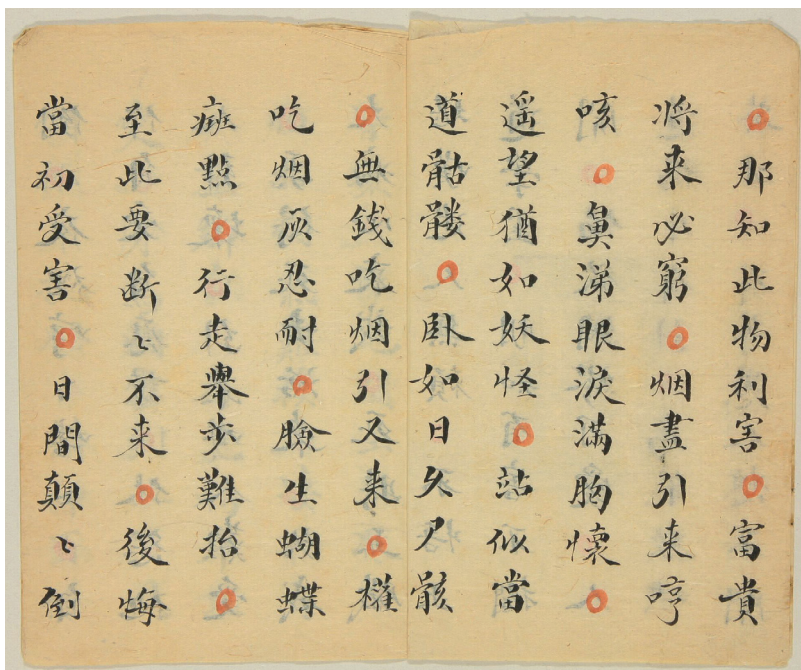 ○那知此物利害○富貴
将来必窮○烟盡引来哼
咳○鼻涕眼淚滿胸懷○
遥望猶如妖怪○站似當
道骷髏○卧如日久尸骸
○無錢吃烟引又来○權
吃烟灰忍耐○臉生蝴蝶
斑點○行走舉步難抬○
至此要断〻不来○後悔
當初受害○日間顛〻倒